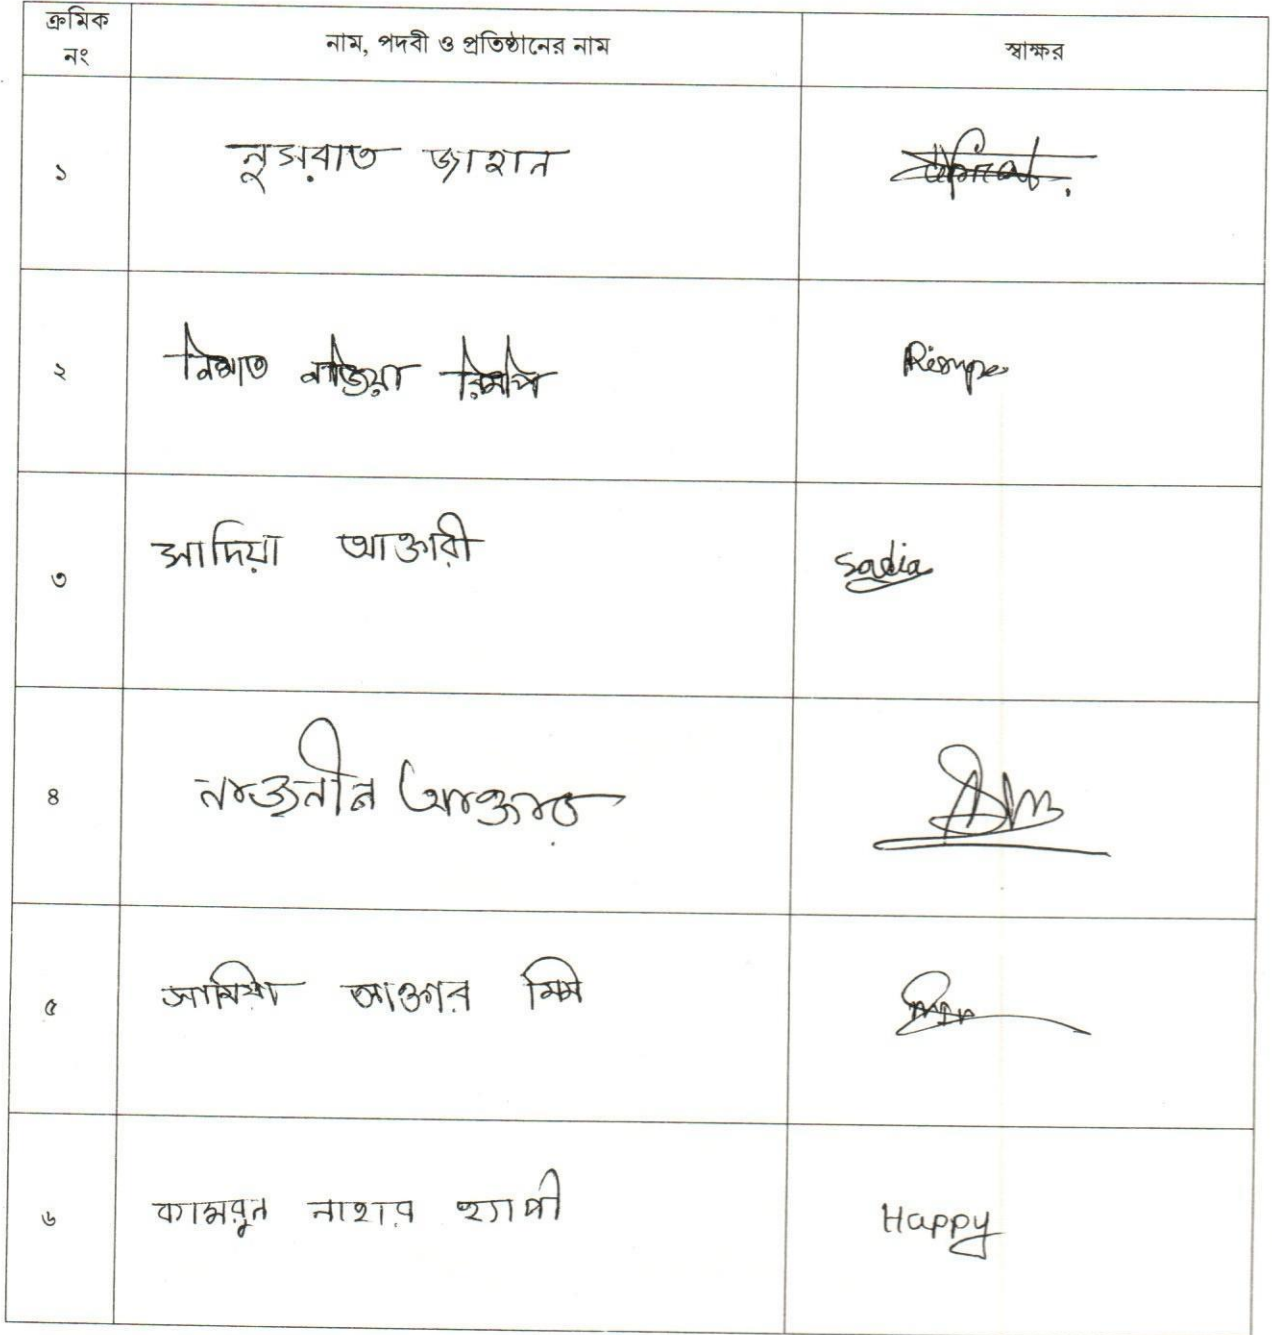 ক্রমিক নং নাম, পদবী ও প্রতিষ্ঠানের নাম স্বাক্ষর
১ নুসরাত জাহান
২ নাজিয়া রিমপি
৩ সাদিয়া আক্তারী Sadia
৪ নাজনীন আক্তার
৫ সামিয়া আক্তার মিম
৬ কামরুন নাহার হ্যাপী Happy